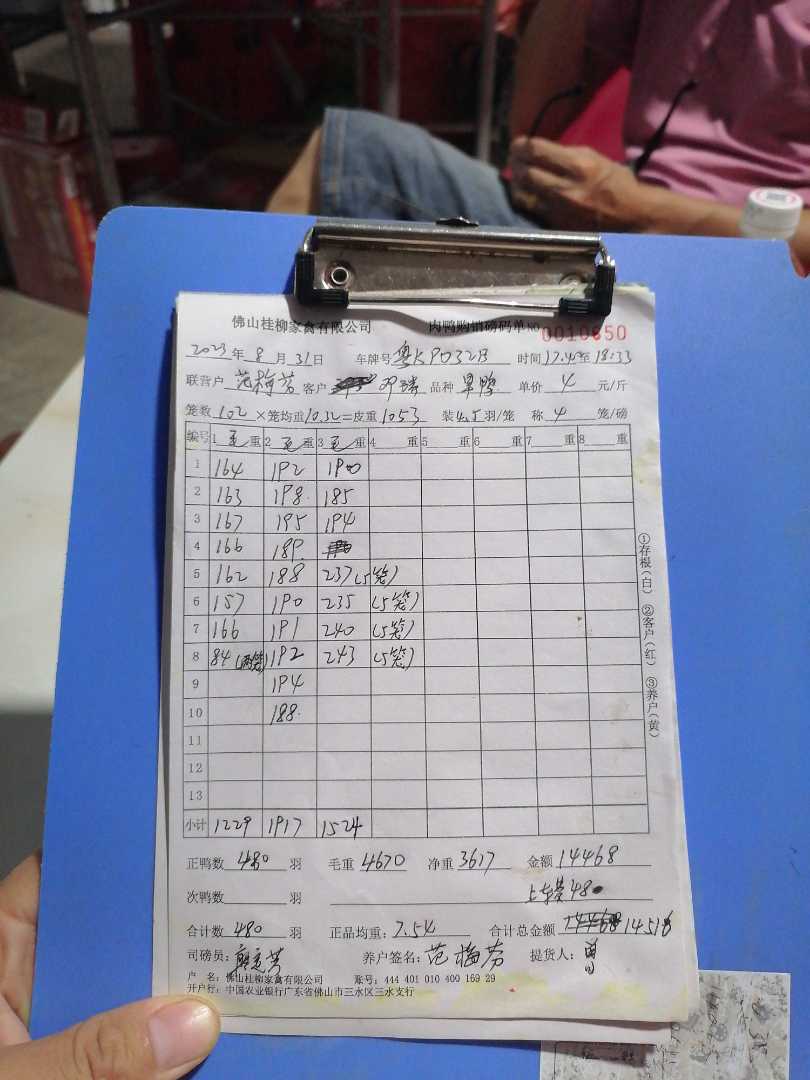 佛山桂柳家禽有限公司 肉鸭购销磅码单 NO 0010650
2023年 8 月 31 日 车牌号 粤KP032B 时间 17:40至18:33
联营户 范梅芳 客户 邓 品种 单价 4 元/斤
笼数 102 ×笼均重 10.32 =皮重 1053 装 4.5 羽/笼 称 4 笼/磅
编号 1 毛 重 2 毛 重 3 毛 重 4 重 5 重 6 重 7 重 8 重
1 164 192 190
2 163 198 185
3 167 195 194
4 166 189
5 162 188 237(5笼)
6 157 190 235 (5笼)
7 166 191 240 (5笼)
8 84 (两笼) 192 243 (5笼)
9 194
10 188
11
12
13
小计 1229 1917 1524
正鸭数 480 羽 毛重 4670 净重 3617 金额 14468
次鸭数 羽 上车费 48
合计数 480 羽 正品均重: 7.54 合计总金额 14516
司磅员: 养户签名: 范梅芳 提货人:
户 名: 佛山桂柳家禽有限公司 账号: 444 401 010 400 169 29
开户行: 中国农业银行广东省佛山市三水区三水支行
①存根(白) ②客户(红) ③养户(黄)